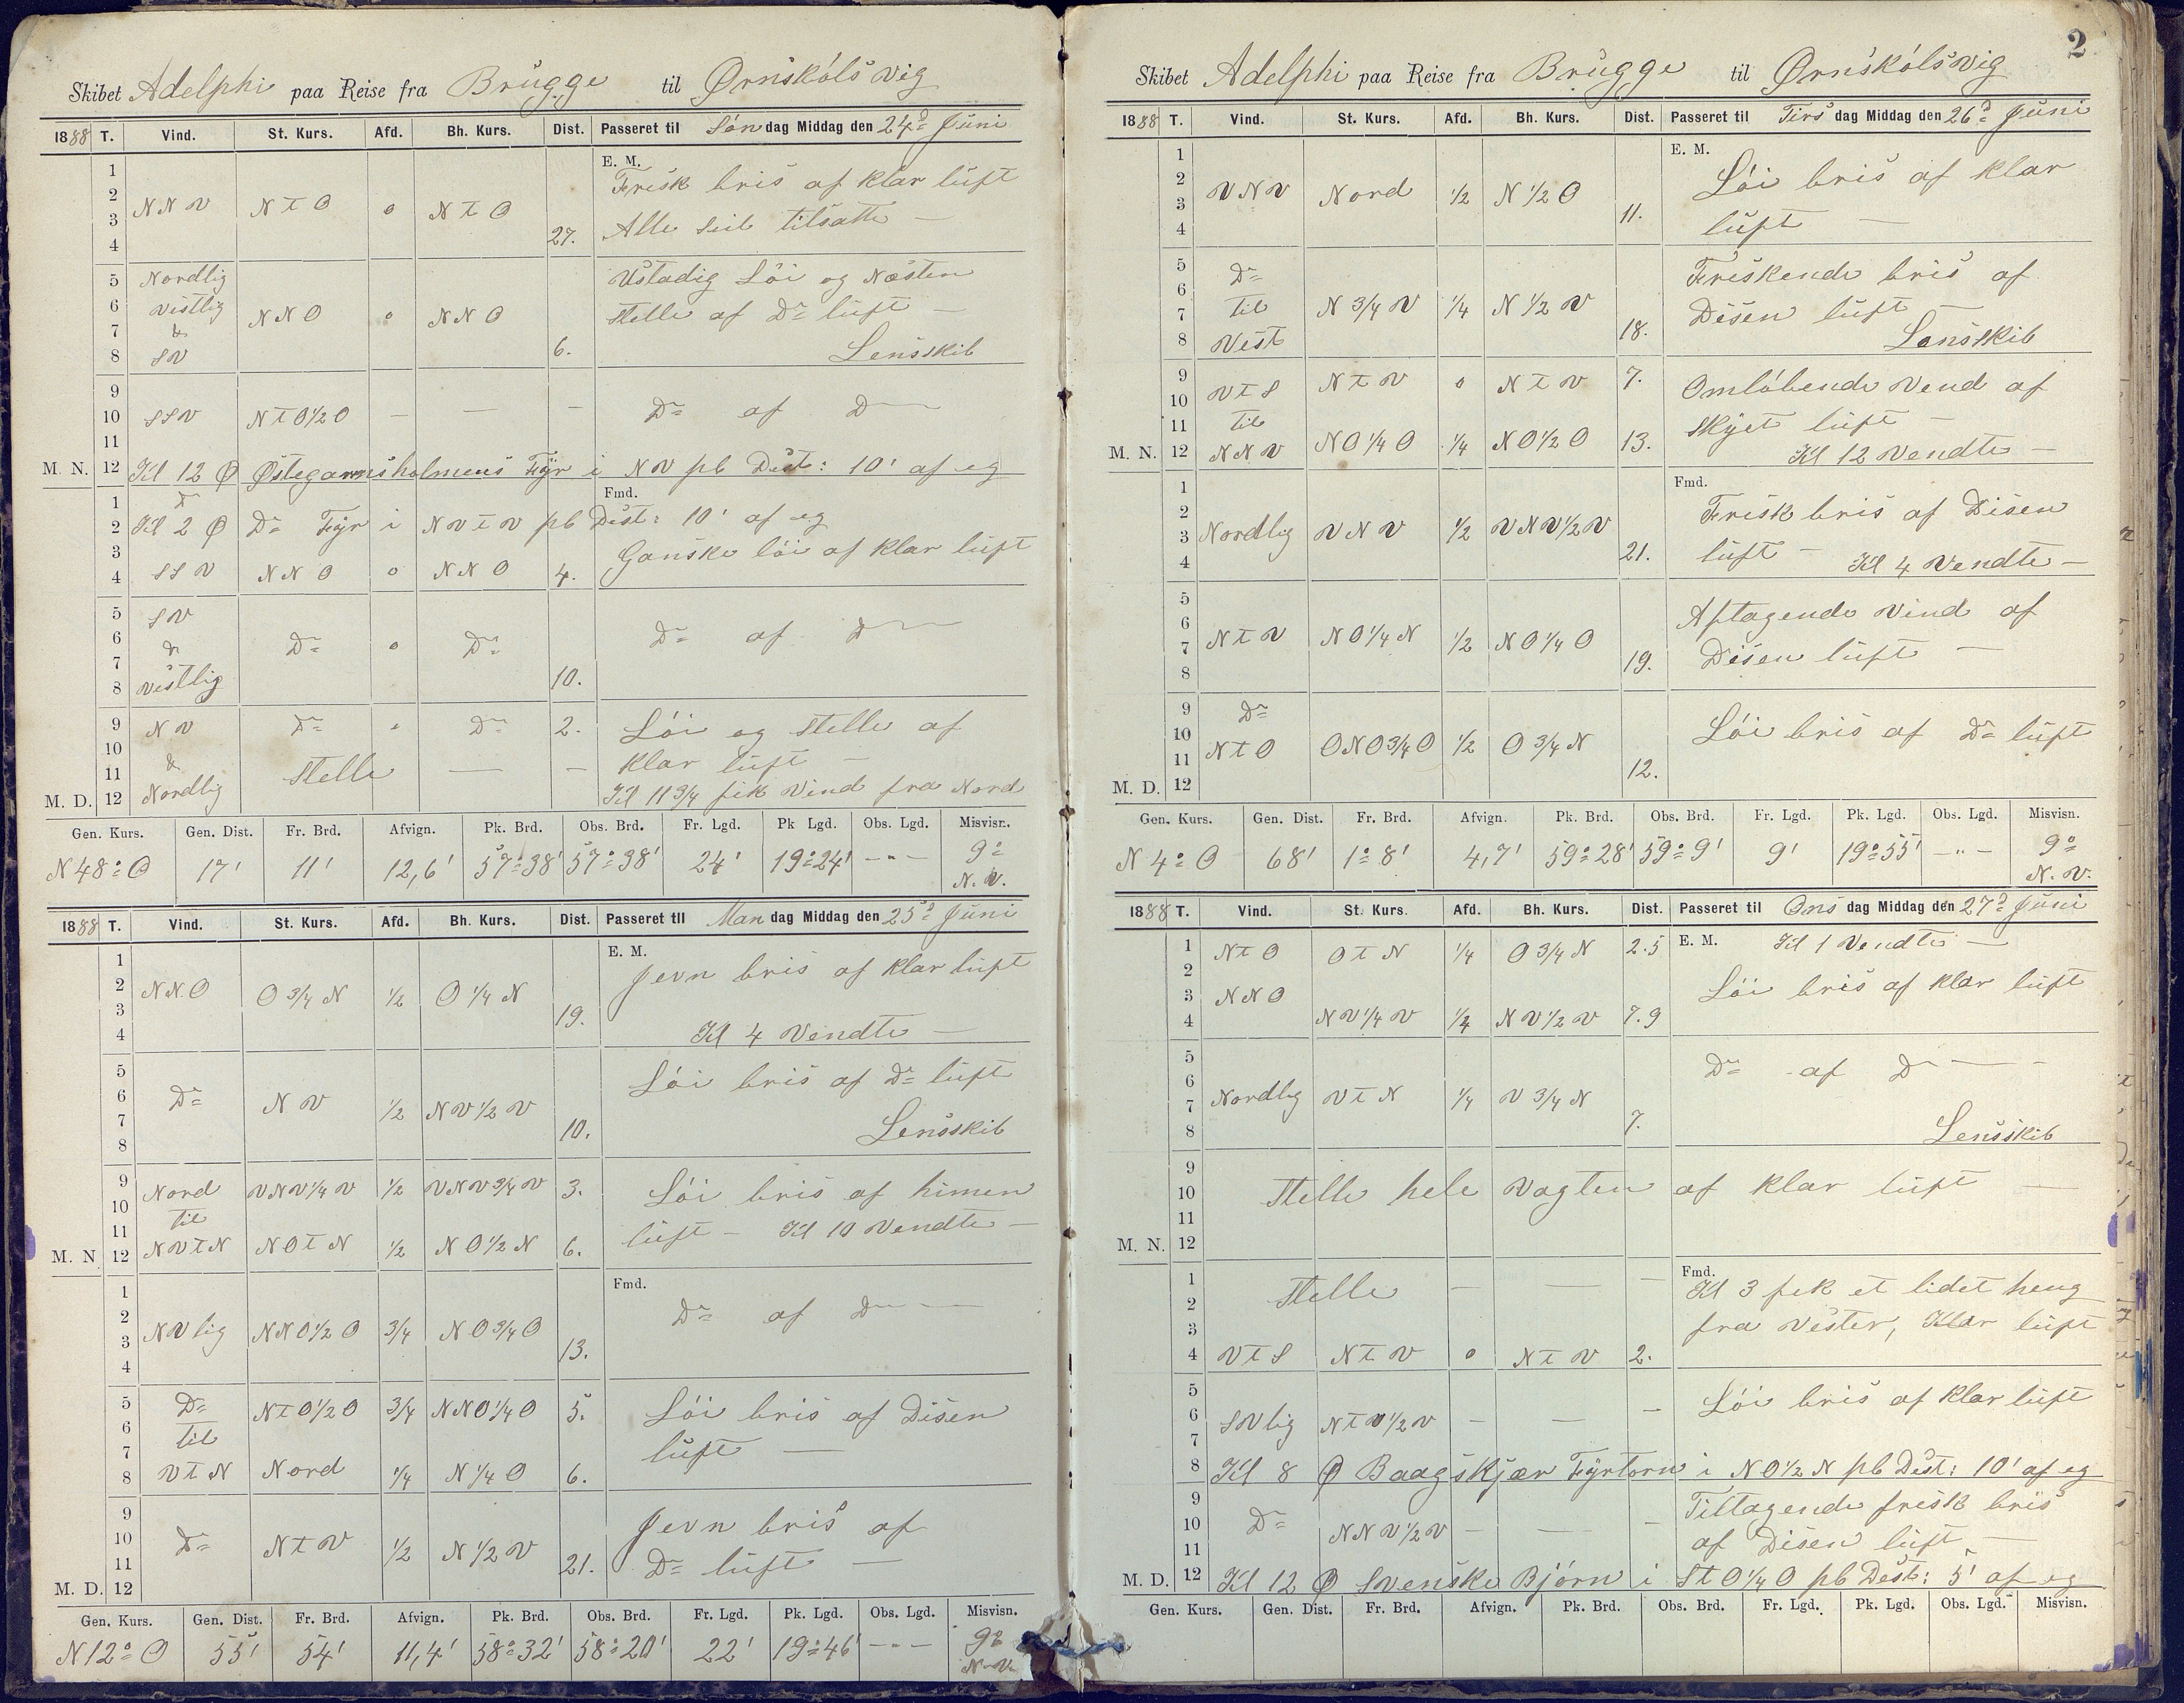 Skibet Adelphi paa Reise fra Brügge til Ørnskóls vig
1888 T. Vind. St. Kurs. Afd. Bh. Kurs. Dist. Passeret til Søn dag Middag den 24d Juni
E. M.
1
2
3 NNV NTO 0 NTO 27.
4
Frisk bris af klar luft
Alle seil tilsatte —
5 Nordlig
6 Vestlig NNO 0 NNO
7 &
8 SV 6.
Ustadig Löi og Næsten
Stelle af Do luft —
Lensskib
9
10 SSV NTO1/2O — — — Do af D—
11
M. N. 12 Kl 12 Ø Østegarnsholmens Fÿr i NV pb Dist: 10' af eg
Fmd.
1
2 Kl 2 Ø Do Fÿr i NVTV pb Dist: 10' af eg
3
4 SSV NNO 0 NNO 4. Ganske löi af klar luft
5 SV
6 & Do 0 Do Do af D—
7
8 Vestlig 10.
9 NV Do " Do 2. Löi og Stelle af
10
11 & Stelle — — klar luft —
M. D. 12 Nordlig Kl 11 3/4 fik Vind fra Nord
Gen. Kurs. Gen. Dist. Fr. Brd. Afvign. Pk. Brd. Obs. Brd. Fr. Lgd. Pk Lgd. Obs. Lgd. Misvisn.
N 48° O 17' 11' 12,6' 57° 38' 57° 38' 24' 19° 24' — " — 9° N. V.
1888 T. Vind. St. Kurs. Afd. Bh. Kurs. Dist. Passeret til Man dag Middag den 25d Juni
E. M.
1
2 NNO O 3/4 N 1/2 O 1/4 N Jevn bris af klar luft
3 19.
4 Kl 4 Vendte —
5 Löi bris af Do luft
6 Do NV 1/2 NV 1/2 V
7 10. Lensskib
8
9 Nord VNV 1/4 V 1/2 VNV 3/4 V 3. Löi bris af himen
10 til
11 luft — Kl 10 Vendte —
M. N 12 NVTN NOTN 1/2 NO 1/2 N 6.
Fmd.
1
2 NV lig NNO 1/2 O 3/4 NO 3/4 O Do af D—
3 13.
4
5 Do NTO 1/2 O 3/4 NNO 1/4 O 5. Löi bris af Disen
6 til
7 luft —
8 VTN Nord 1/4 N 1/4 O 6.
9
10 Do NTV 1/2 N 1/2 V Jevn bris af
11 21. Do luft —
M. D. 12
Gen. Kurs. Gen. Dist. Fr. Brd. Afvign. Pk. Brd. Obs. Brd. Fr. Lgd. Pk. Lgd. Obs. Lgd. Misvisn.
N 12° O 55' 54' 11,4' 58° 32' 58° 20' 22' 19° 46' — " — 9° N. V.
2
Skibet Adelphi paa Reise fra Brügge til Ørnskólsvig
1888 T. Vind. St. Kurs. Afd. Bh. Kurs. Dist. Passeret til Tirs dag Middag den 26d Juni
E. M.
1
2 VNV Nord 1/2 N 1/2 O Löi bris af klar
3 11.
4 luft —
5 Do Friskende bris af
6
7 til N 3/4 V 1/4 N 1/2 V Disen luft —
8 Vest 18. Lensskib
9 VTS NTV 0 NTV 7. Omlöbende Vend af
10
11 til skÿet luft —
M. N. 12 NNV NO 1/4 O 1/4 NO 1/2 O 13. Kl 12 Vendte —
Fmd.
1
2 Frisk bris af Disen
3 Nordlig VNV 1/2 VNV 1/2 V 21.
4 luft — Kl 4 Vendte —
5 Aftagende Vind af
6
7 NTV NO 1/4 N 1/2 NO 1/4 O 19. Disen luft —
8
9 Do
10 Löi bris af Do luft
11 NTO ONO 3/4 O 1/2 O 3/4 N 12.
M. D. 12
Gen. Kurs. Gen. Dist. Fr. Brd. Afvign. Pk. Brd. Obs. Brd. Fr. Lgd. Pk. Lgd. Obs. Lgd. Misvisn.
N 4° O 68' 1° 8' 4,7' 59° 28' 59° 9' 9' 19° 55' — " — 9° N. V.
1888 T. Vind. St. Kurs. Afd. Bh. Kurs. Dist. Passeret til Ons dag Middag den 27d Juni
1 NTO OTN 1/4 O 3/4 N 2.5 E. M. Kl 1 Vendte —
2
3 NNO Löi bris af klar luft
4 NV 1/4 V 1/4 NV 1/2 V 7.9
5 Do af D—
6
7 Nordlig VTN 1/4 V 3/4 N
8 7. Lensskib
9
10 Stelle hele Vagten af klar luft —
11
M. N. 12
Fmd.
1 Stelle — — — Kl 3 fek et lidet heng
2
3 fra Vester, Klar luft
4 VTS NTV 0 NTV 2.
5 Löi bris af klar luft
6 SV lig NTV 1/2 V — — —
7
8 Kl 8 Ø Baagskjær Fÿrtorn i NO 1/2 N pb Dist: 10' af eg
9 Tiltagende frisk bris
10 Do NNV 1/2 V — — —
11 af Disen luft —
M. D. 12 Kl 12 Ø Svenske Björn i STO 1/4 O pb Dist: 5' af eg
Gen. Kurs. Gen. Dist. Fr. Brd. Afvign. Pk. Brd. Obs. Brd. Fr. Lgd. Pk. Lgd. Obs. Lgd. Misvisn.